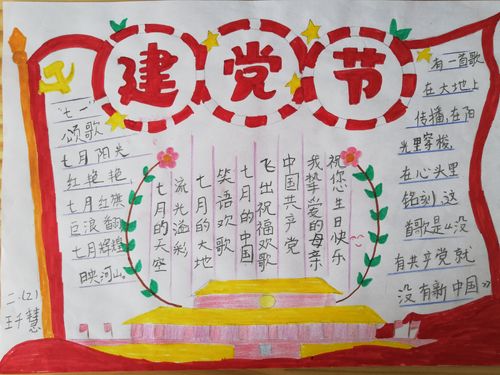 建党节
"七一"
颂歌
七月阳光
红艳艳,
七月红旗
巨浪翻,
七月辉煌
映河山。
七月的天空
流光溢彩
七月的大地
笑语欢歌
七月的中国
飞出祝福欢歌
中国共产党
我挚爱的母亲
祝您生日快乐
有一首歌
在大地上
传播,在阳
光里穿梭,
在心头里
铭刻,这
首歌是《没
有共产党就
没有新中国》
二.(2)
王千慧